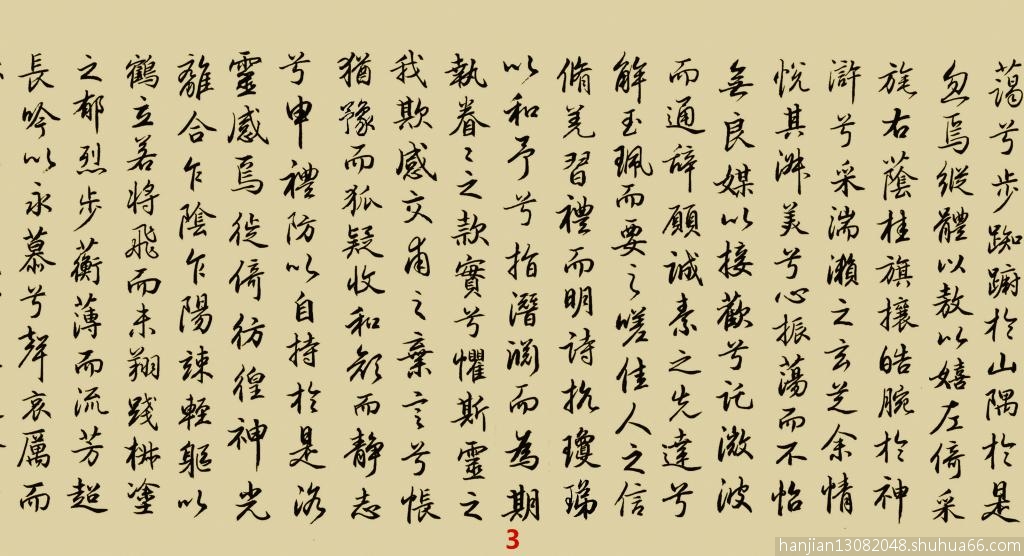 藹兮步踟躕於山隅於是
忽焉縱體以敖以嬉左倚采
旄右蔭桂旗攘皓腕於神
滸兮采湍瀨之玄芝余情
悅其淑美兮心振蕩而不怡
無良媒以接歡兮託微波
而通辭願誠素之先達兮
解玉珮而要之嗟佳人之信
脩羌習禮而明詩抗瓊珶
以和予兮指潛淵而為期
執眷〻之款實兮懼斯靈之
我欺感交甫之棄言兮悵
猶豫而狐疑收和顏而靜志
兮申禮防以自持於是洛
靈感焉徙倚彷徨神光
離合乍陰乍陽竦輕軀以
鶴立若將飛而未翔踐椒塗
之郁烈步蘅薄而流芳超
長吟以永慕兮聲哀厲而
3
hanjian13082048.shuhua66.com